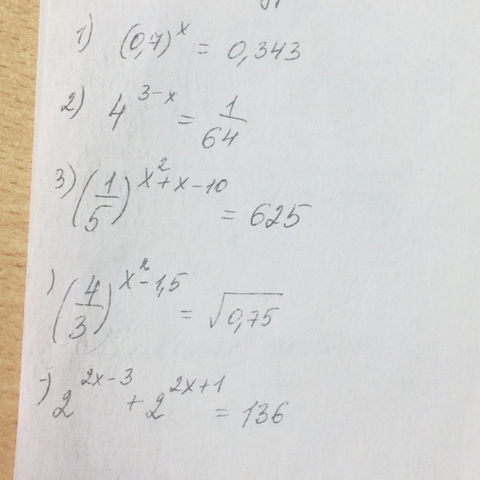 1) (0,7)^x = 0,343
2) 4^{3-x} = 1/64
3) (1/5)^{x^2+x-10} = 625
) (4/3)^{x^2-1,5} = √0,75
) 2^{2x-3} + 2^{2x+1} = 136